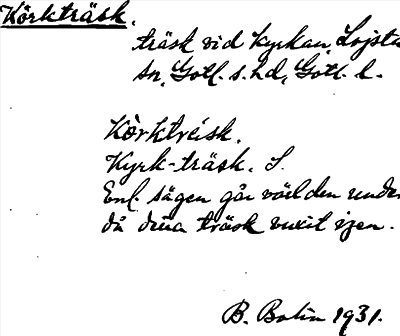 Körkträsk.
träsk vid kyrkan, Lojsta
sn, Gotl. s. hd, Gotl. l.
Körktreisk.
Kyrk-träsk. S.
Enl. sägen går världen under
då dessa träsk vuxit igen.
B. Bolin 1931.